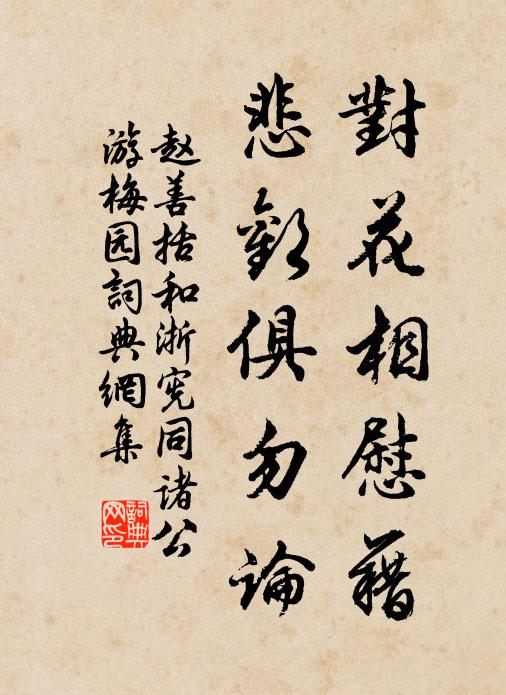 對花相慰藉
悲歡俱勿論
赵善括和浙宪同诸公
游梅园詞典網集
詞典
网印